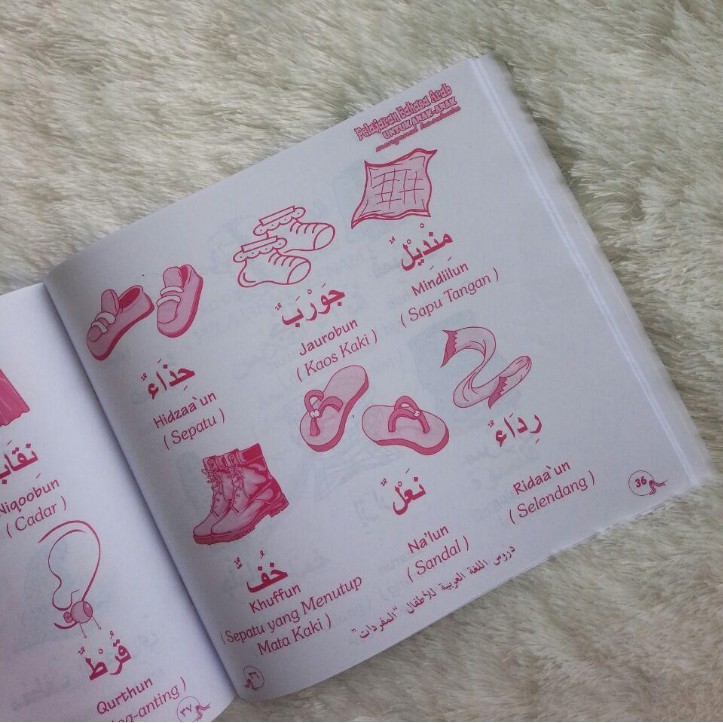 Pelajaran Bahasa Arab
UNTUK ANAK-ANAK
مِنْدِيْلٌ
Mindiilun
( Sapu Tangan )
جَوْرَبٌ
Jaurobun
( Kaos Kaki )
حِذَاءٌ
Hidzaa`un
( Sepatu )
رِدَاءٌ
Ridaa`un
( Selendang )
نَعْلٌ
Na'lun
( Sandal )
خُفٌّ
Khuffun
( Sepatu yang Menutup
Mata Kaki )
36
دروس اللغة العربية للأطفال "المفردات"
٣٦
Niqoobun
( Cadar )
قُرْطٌ
Qurthun
-anting )
٣٧